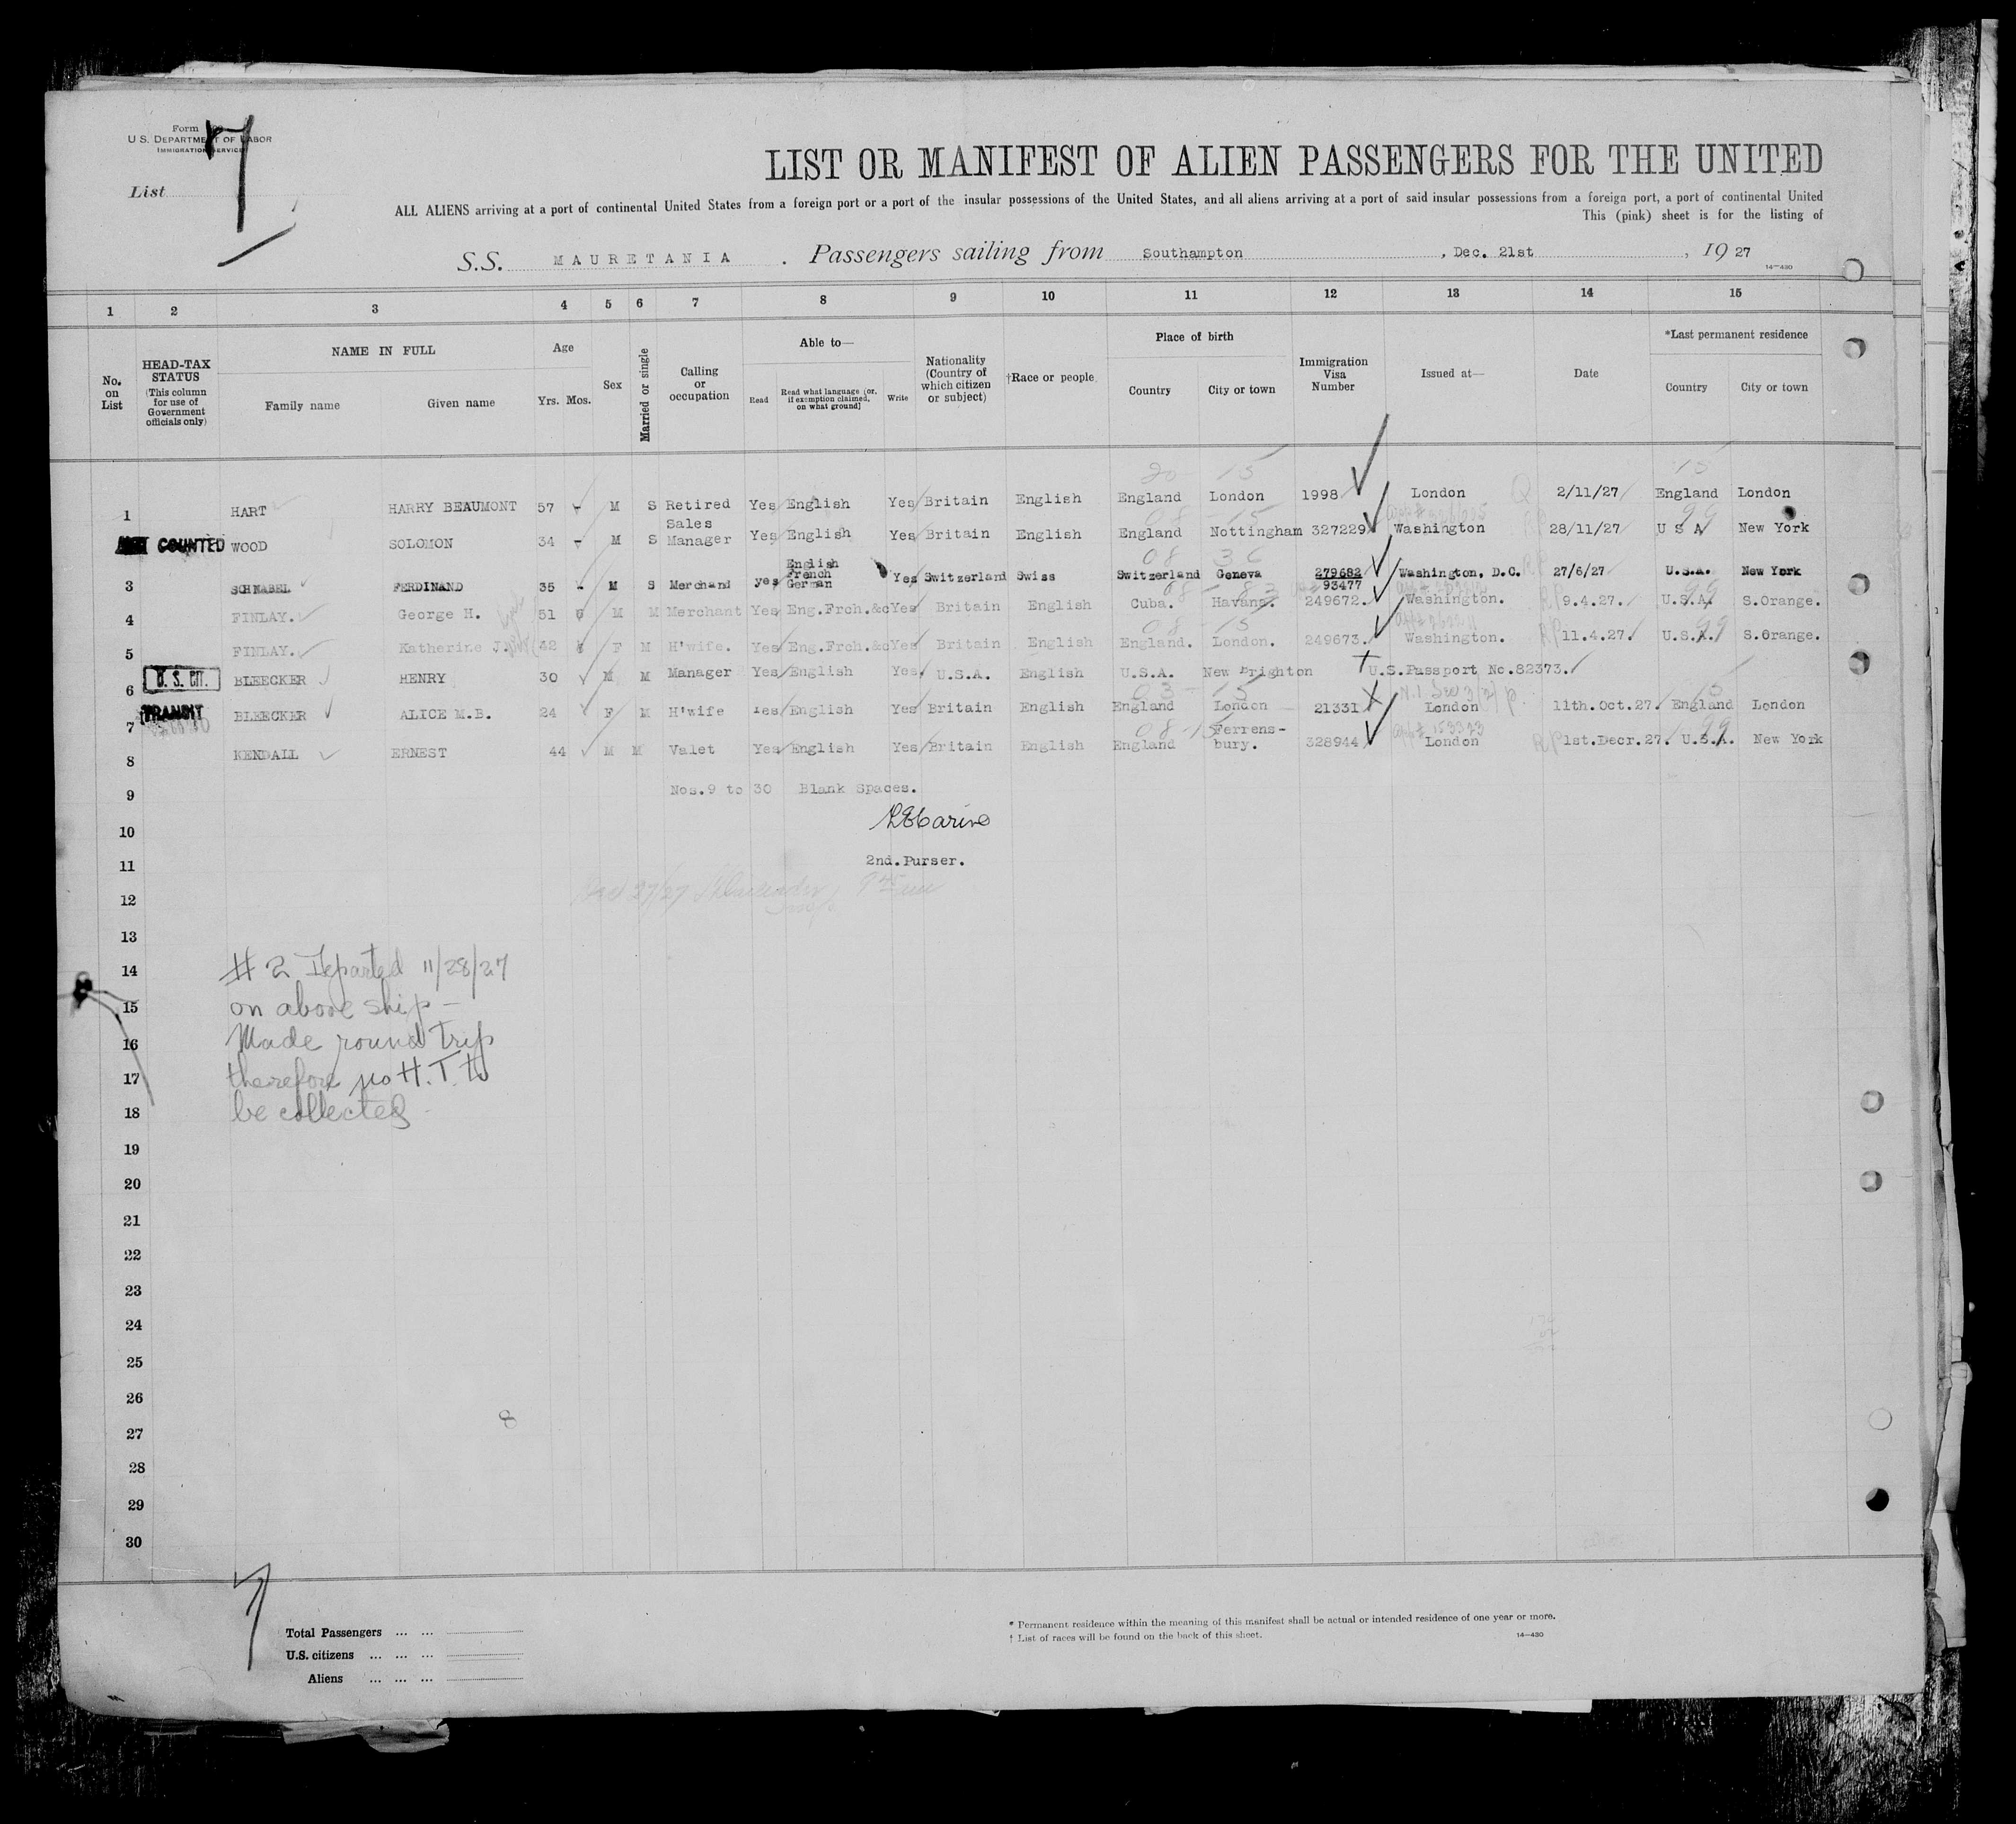 Form
U. S. DEPARTMENT OF LABOR
IMMIGRATION SERVICE
7
List
LIST OR MANIFEST OF ALIEN PASSENGERS FOR THE UNITED
ALL ALIENS arriving at a port of continental United States from a foreign port or a port of the insular possessions of the United States, and all aliens arriving at a port of said insular possessions from a foreign port, a port of continental United
This (pink) sheet is for the listing of
S.S. MAURETANIA . Passengers sailing from Southampton , Dec. 21st , 19 27
14—430
1 2 3 4 5 6 7 8 9 10 11 12 13 14 15
No. on List
HEAD-TAX STATUS (This column for use of Government officials only)
NAME IN FULL
Family name Given name
Age
Yrs. Mos.
Sex
Married or single
Calling or occupation
Able to—
Read
Read what language (or, if exemption claimed, on what ground)
Write
Nationality (Country of which citizen or subject)
†Race or people
Place of birth
Country City or town
Immigration Visa Number
Issued at—
Date
*Last permanent residence
Country City or town
20 15 15
1 HART HARRY BEAUMONT 57 - M S Retired Yes English Yes Britain English England London 1998 London 2/11/27 England London
08 15 99
COUNTED WOOD SOLOMON 34 - M S Sales Manager Yes English Yes Britain English England Nottingham 327229 Washington 28/11/27 U S A New York
08 36
3 SCHNABEL FERDINAND 35 - M S Merchand yes English French German Yes Switzerland Swiss Switzerland Geneva 279682 93477 Washington, D.C. 27/6/27 U.S.A. New York
4 FINLAY. George H. 51 M M Merchant Yes Eng.Frch.&c Yes Britain English Cuba. Havana. 249672. Washington. RP 9.4.27. U.S.A. S.Orange.
08 15 99
5 FINLAY. Katherine J. 42 F M H'wife. Yes Eng.Frch.&c Yes Britain English England. London. 249673. Washington. RP 11.4.27. U.S.A. S.Orange.
6 U. S. CIT. BLEECKER HENRY 30 M M Manager Yes English Yes U.S.A. English U.S.A. New Brighton U.S.Passport No.82373.
03 15 15
7 TRANSIT BLEECKER ALICE M.B. 24 F M H'wife Yes English Yes Britain English England London 21331 London 11th.Oct.27. England London
08-15 99
8 KENDALL ERNEST 44 M M Valet Yes English Yes Britain English England Ferrens-bury. 328944 London RP 1st.Decr.27. U.S.A. New York
9 Nos.9 to 30 Blank Spaces.
10
11 2nd.Purser.
12
13
14 # 2 Departed 11/28/27
15 on above ship —
16 Made round trip
17 therefore no H.T. to
18 be collected
19
20
21
22
23
24
25
26
8
27
28
29
30
7
Total Passengers ... ...
U.S. citizens ... ... ...
Aliens ... ... ...
* Permanent residence within the meaning of this manifest shall be actual or intended residence of one year or more.
† List of races will be found on the back of this sheet.
14—430